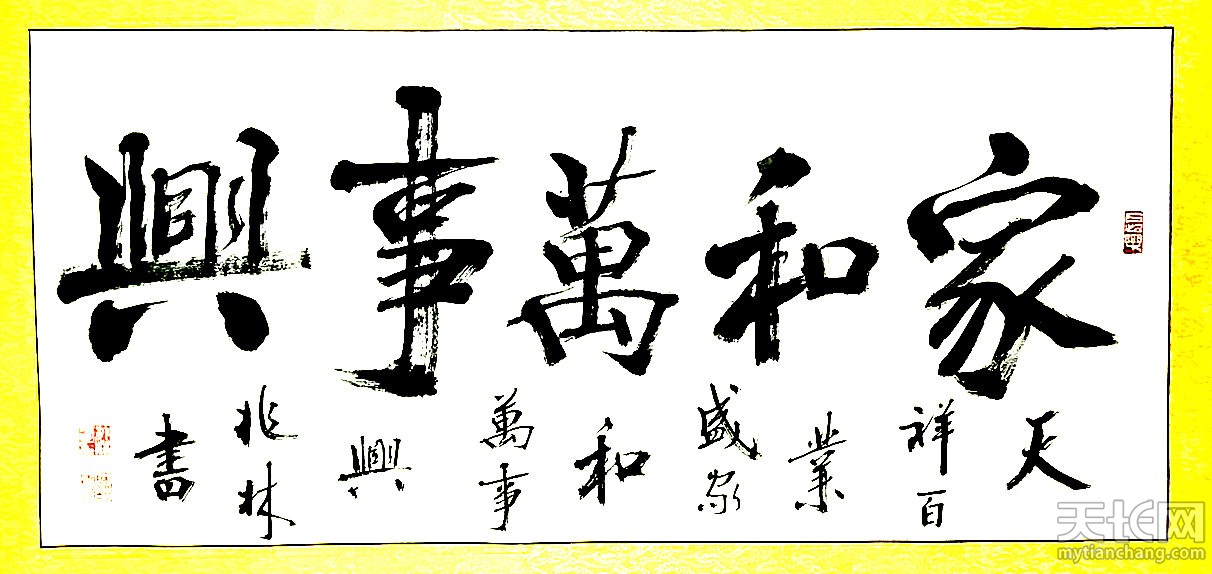 家和萬事興
天
祥百
業
盛家
和
萬事
興
兆林
書
天长网
mytianchang.com